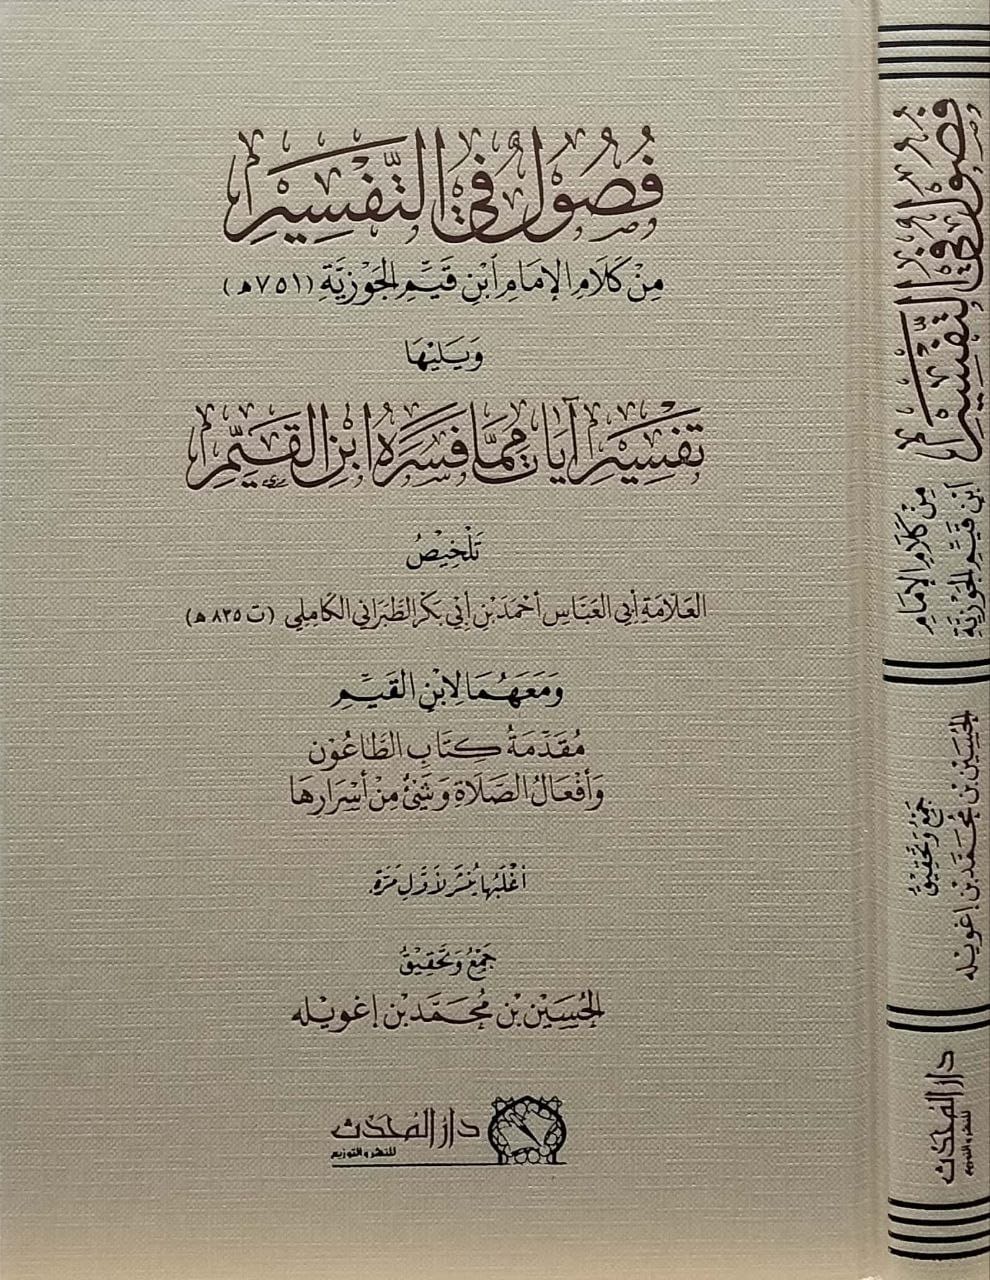 فُصُولٌ فِي التَّفْسِيرِ
مِنْ كَلَامِ الإِمَامِ ابْنِ قَيِّمِ الجَوْزِيَّةِ (٧٥١هـ)
وَيَلِيْهَا
تَفْسِيرُ آيَاتٍ مِمَّا فَسَّرَهُ ابْنُ القَيِّمِ
تَلْخِيْصُ
العَلَّامَةِ أَبِي العَبَّاسِ أَحْمَدَ بْنِ أَبِي بَكْرٍ الطَّبَرَانِي الكَامِلِي (ت ٨٣٥هـ)
وَمَعَهُمَا لِابْنِ القَيِّمِ
مُقَدِّمَةُ كِتَابِ الطَّاعُوْنِ
وَأَفْعَالُ الصَّلَاةِ وَشَيْءٌ مِنْ أَسْرَارِهَا
أَغْلَبُهَا يُنْشَرُ لِأَوَّلِ مَرَّةٍ
جَمْعُ وَتَحْقِيْقُ
الحُسَيْن بْن مُحَمَّد بْن إغويله
دار المحدث
للنشر والتوزيع
فُصُولٌ فِي التَّفْسِيرِ
مِنْ كَلَامِ الإِمَامِ
ابْنِ قَيِّمِ الجَوْزِيَّةِ
جَمْعُ وَتَحْقِيْقُ
الحُسَيْن بْن مُحَمَّد بْن إغويله
دار المحدث
للنشر والتوزيع